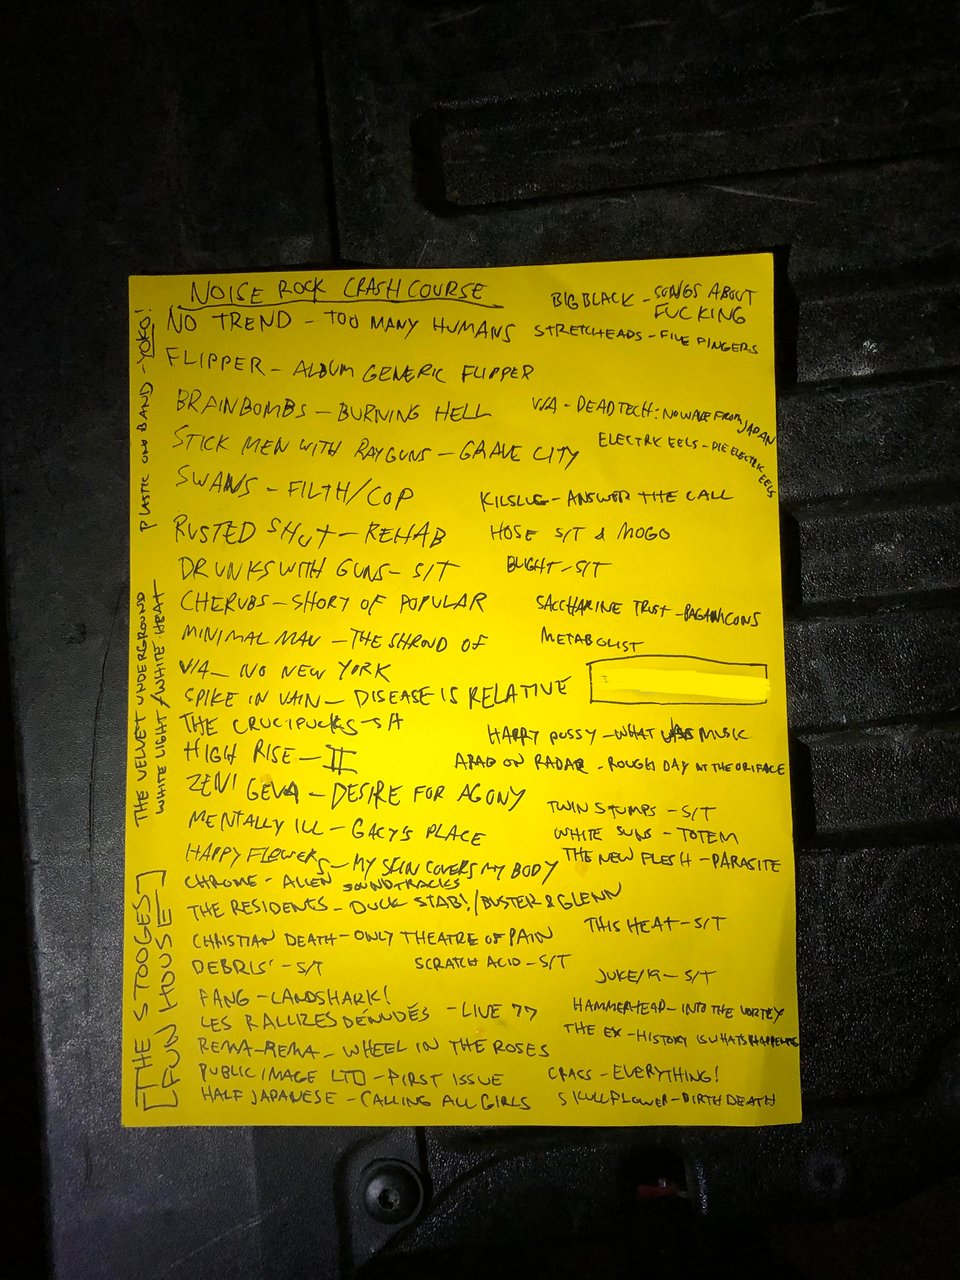 NOISE ROCK CRASH COURSE
NO TREND - TOO MANY HUMANS
FLIPPER - ALBUM GENERIC FLIPPER
BRAINBOMBS - BURNING HELL
STICK MEN WITH RAYGUNS - GRAVE CITY
SWANS - FILTH/COP
RUSTED SHUT - REHAB
DRUNKS WITH GUNS - S/T
CHERUBS - SHORT OF POPULAR
MINIMAL MAN - THE SHROUD OF
V/A - NO NEW YORK
SPIKE IN VAIN - DISEASE IS RELATIVE
THE CRUCIFUCKS - S/T
HIGH RISE - II
ZENI GEVA - DESIRE FOR AGONY
MENTALLY ILL - GACY'S PLACE
HAPPY FLOWERS - MY SKIN COVERS MY BODY
CHROME - ALIEN SOUNDTRACKS
THE RESIDENTS - DUCK STAB!/BUSTER & GLENN
CHRISTIAN DEATH - ONLY THEATRE OF PAIN
DEBRIS' - S/T
SCRATCH ACID - S/T
FANG - LANDSHARK!
LES RALLIZES DÉNUDÉS - LIVE 77
REMA-REMA - WHEEL IN THE ROSES
PUBLIC IMAGE LTD - FIRST ISSUE
HALF JAPANESE - CALLING ALL GIRLS
BIG BLACK - SONGS ABOUT
FUCKING
STRETCHEADS - FIVE FINGERS
V/A - DEAD TECH: NO WAVE FROM JAPAN
ELECTRIC EELS - DIE ELECTRIC EELS
KILSLUG - ANSWER THE CALL
HOSE S/T & MOGO
BLIGHT - S/T
SACCHARINE TRUST - PAGANICONS
METABOLIST
HARRY PUSSY - WHAT WAS MUSIC
ARAB ON RADAR - ROUGH DAY AT THE ORIFACE
TWIN STUMPS - S/T
WHITE SUNS - TOTEM
THE NEW FLESH - PARASITE
THIS HEAT - S/T
JUKE/19 - S/T
HAMMERHEAD - INTO THE VORTEX
THE EX - HISTORY IS WHATS HAPPENING
CRASS - EVERYTHING!
SKULLFLOWER - BIRTHDEATH
PLASTIC ONO BAND - YOKO!
THE VELVET UNDERGROUND
WHITE LIGHT/WHITE HEAT
[THE STOOGES]
[FUN HOUSE]